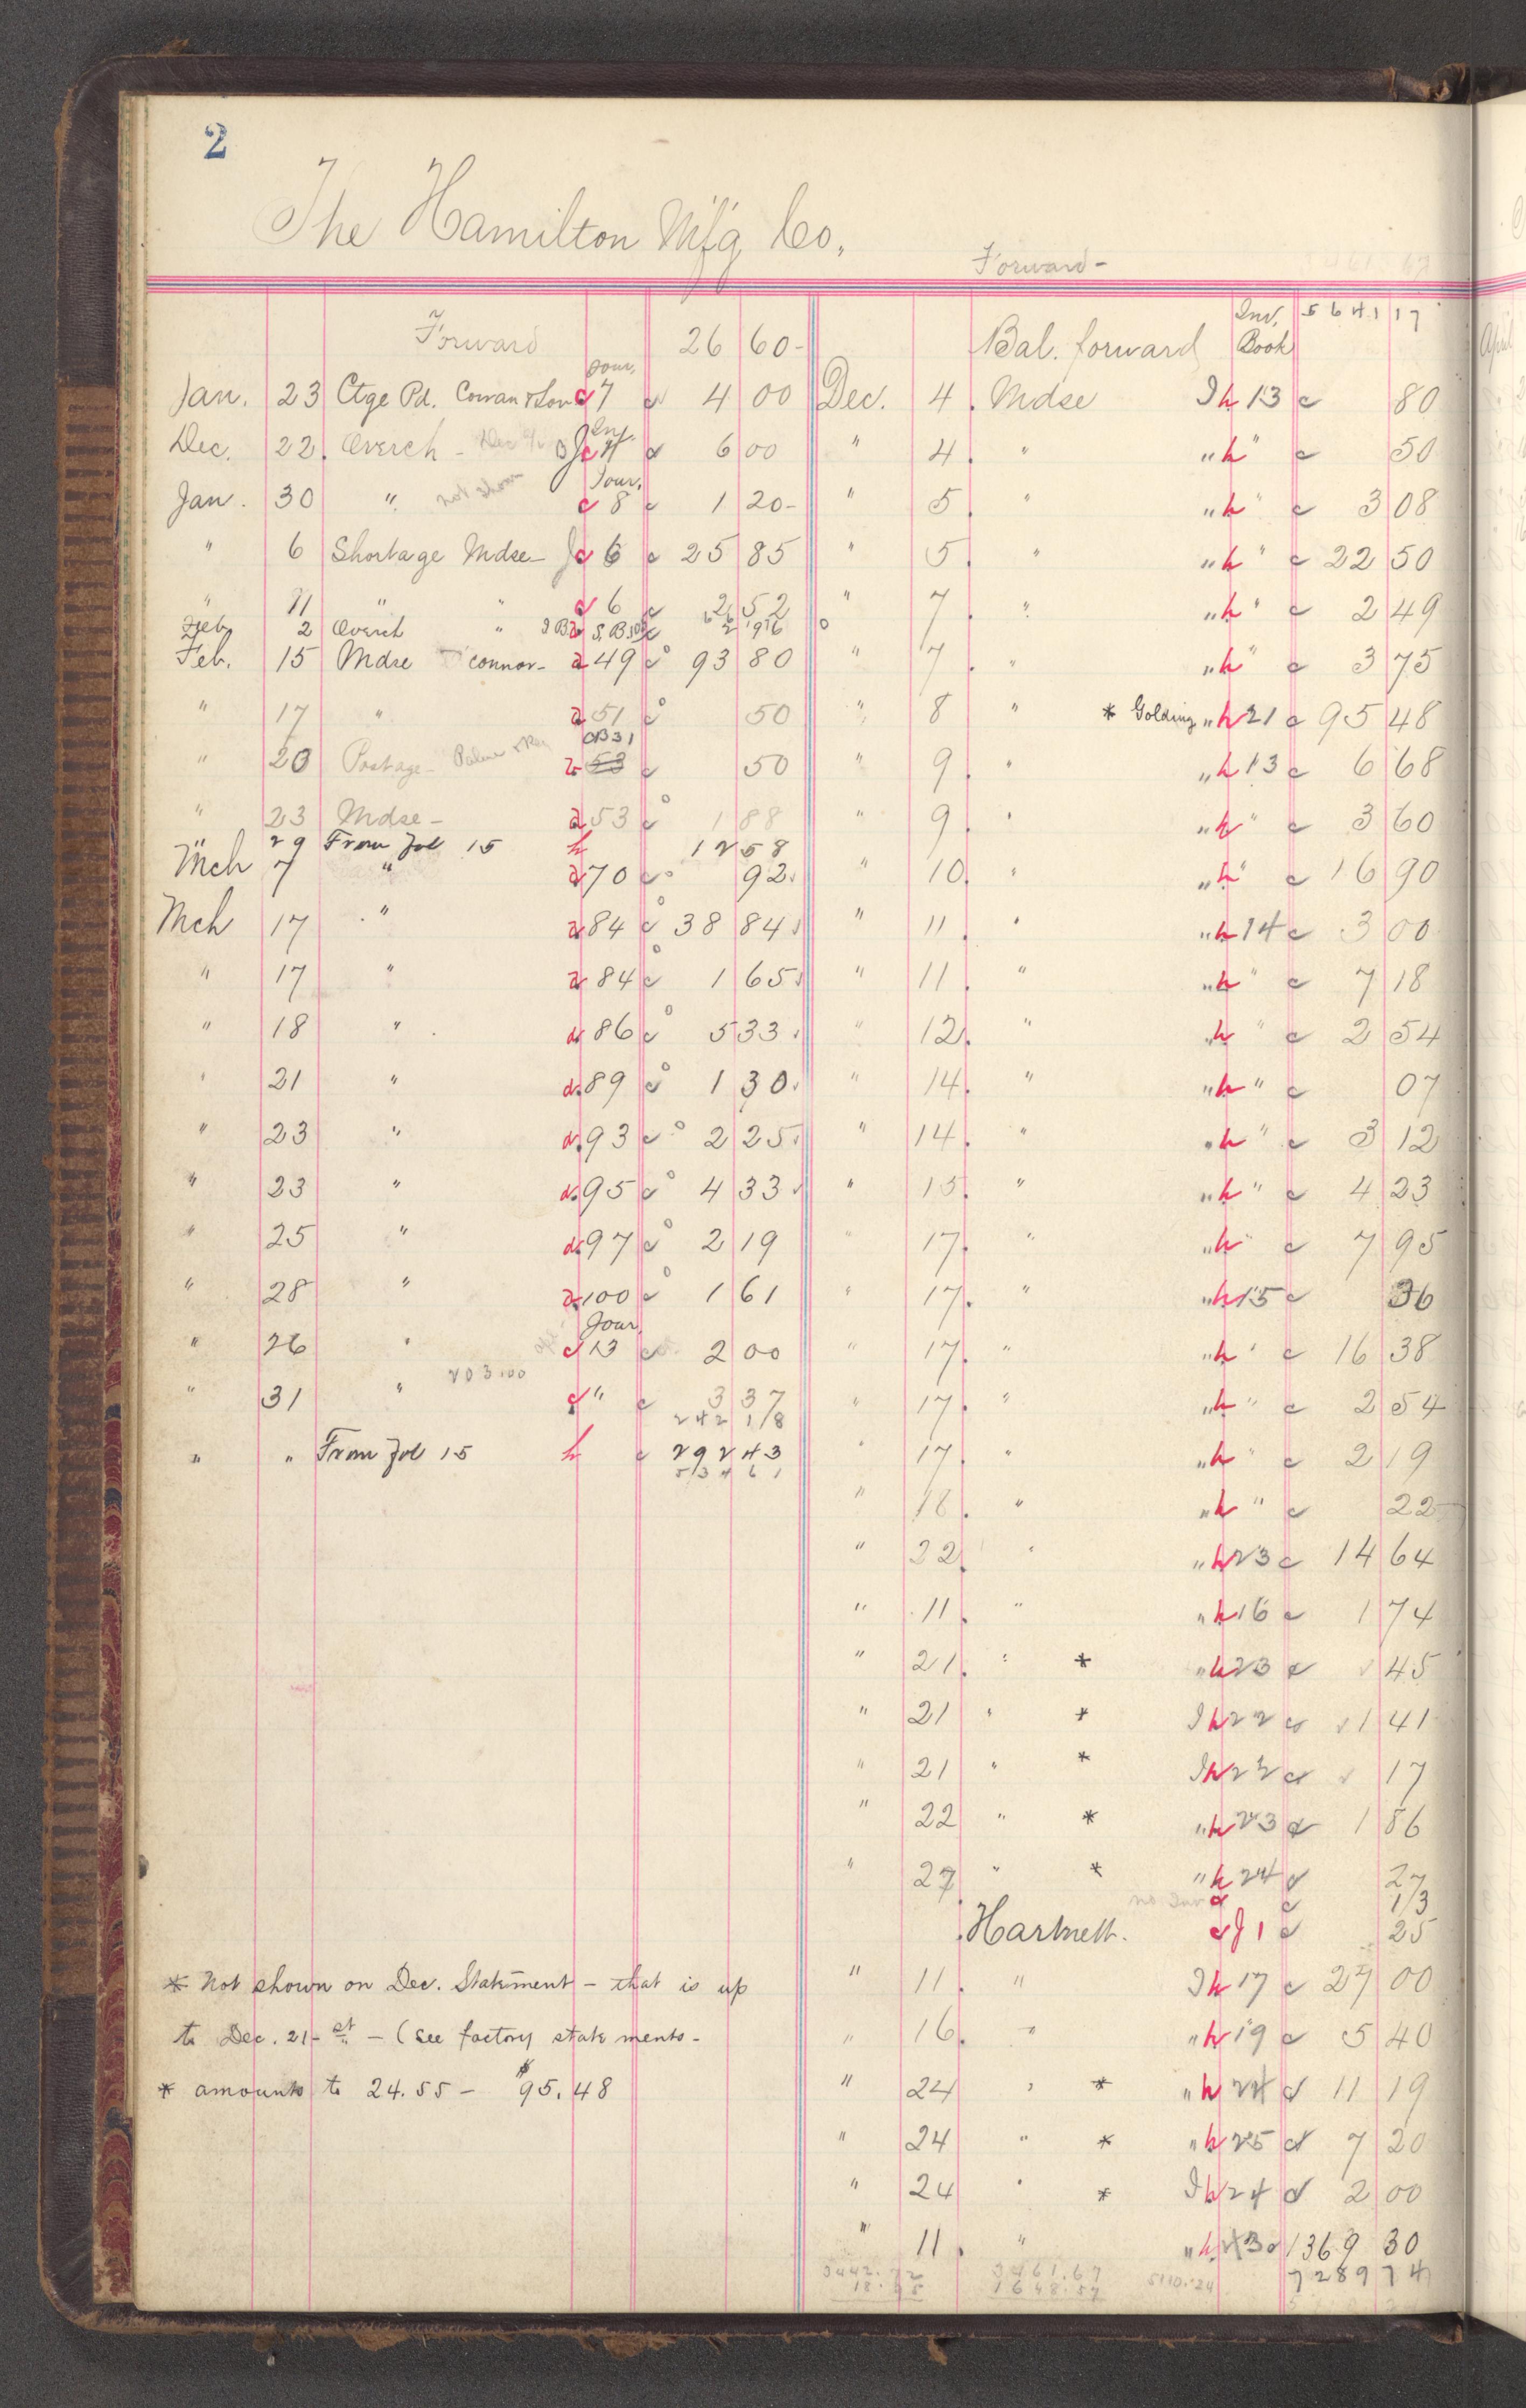 2
The Hamilton M'f'g Co.
Forward -
Forward 26 60 -
Jour.
Jan. 23 Ctge Pd. Cowan & Son c 7 c 4 00
Dec. 22. Overch - c 4 c 6 00
Jour.
Jan. 30 " not shown c 8 c 1 20 -
" 6 Shortage Mdse - J c 6 c 25 85
" 11 " " c 6 c 2 52
Feb 2 Overch "
Feb. 15 Mdse Connor - a 49 c 93 80
" 17 " a 51 c 50
CB 31
" 20 Postage - a 53 c 50
" 23 Mdse - a 53 c 1 88
" 29 From Fol 15 h 12 58
Mch 7 " a 70 c 92
Mch 17 " a 84 c 38 84
" 17 " a 84 c 1 65
" 18 " a 86 c 5 33
" 21 " a 89 c 1 30
" 23 " a 93 c 2 25
" 23 " a 95 c 4 33
" 25 " a 97 c 2 19
" 28 " a 100 c 1 61
Jour.
" 26 " c 13 c 2 00
203.00
" 31 " c " c 3 37
242 18
" " From Fol 15 h c 292 43
534 61
* Not shown on Dec. Statement - that is up
to Dec. 21 - st - (see factory statements -
* amounts to 24.55 - $95.48
Bal. forward Inv. Book 5641 17
Dec. 4. Mdse I h 13 c 80
" 4. " " h " c 50
" 5. " " h " c 3 08
" 5. " " h " c 22 50
" 7. " " h " c 2 49
" 7. " " h " c 3 75
" 8 " * Golding " h 21 c 95 48
" 9. " " h 13 c 6 68
" 9. " " h " c 3 60
" 10. " " h " c 16 90
" 11. " " h 14 c 3 00
" 11. " " h " c 7 18
" 12. " " h " c 2 54
" 14. " " h " c 07
" 14. " " h " c 3 12
" 15. " " h " c 4 23
" 17. " " h " c 7 95
" 17. " " h 15 c 36
" 17. " " h " c 16 38
" 17. " " h " c 2 54
" 17. " " h " c 2 19
" 18. " " h " c 22
" 22. " " h 23 c 14 64
" 11. " " h 16 c 1 74
" 21. " * " h 23 c 45
" 21 " * I h 22 c 1 41
" 21 " * I h 22 c 17
" 22 " * " h 23 c 1 86
" 27 " * " h 24 c 27
no Inv c c 13
Hartnett. c J 1 c 25
" 11. " I h 17 c 27 00
" 16. " " h 19 c 5 40
" 24 " * " h 24 c 11 19
" 24 " * " h 25 c 7 20
" 24 " * I h 24 c 2 00
" 11. " " h 43 c 1369 30
3442.72 3461.67 5110.24 7289 74
18.95 1648.57